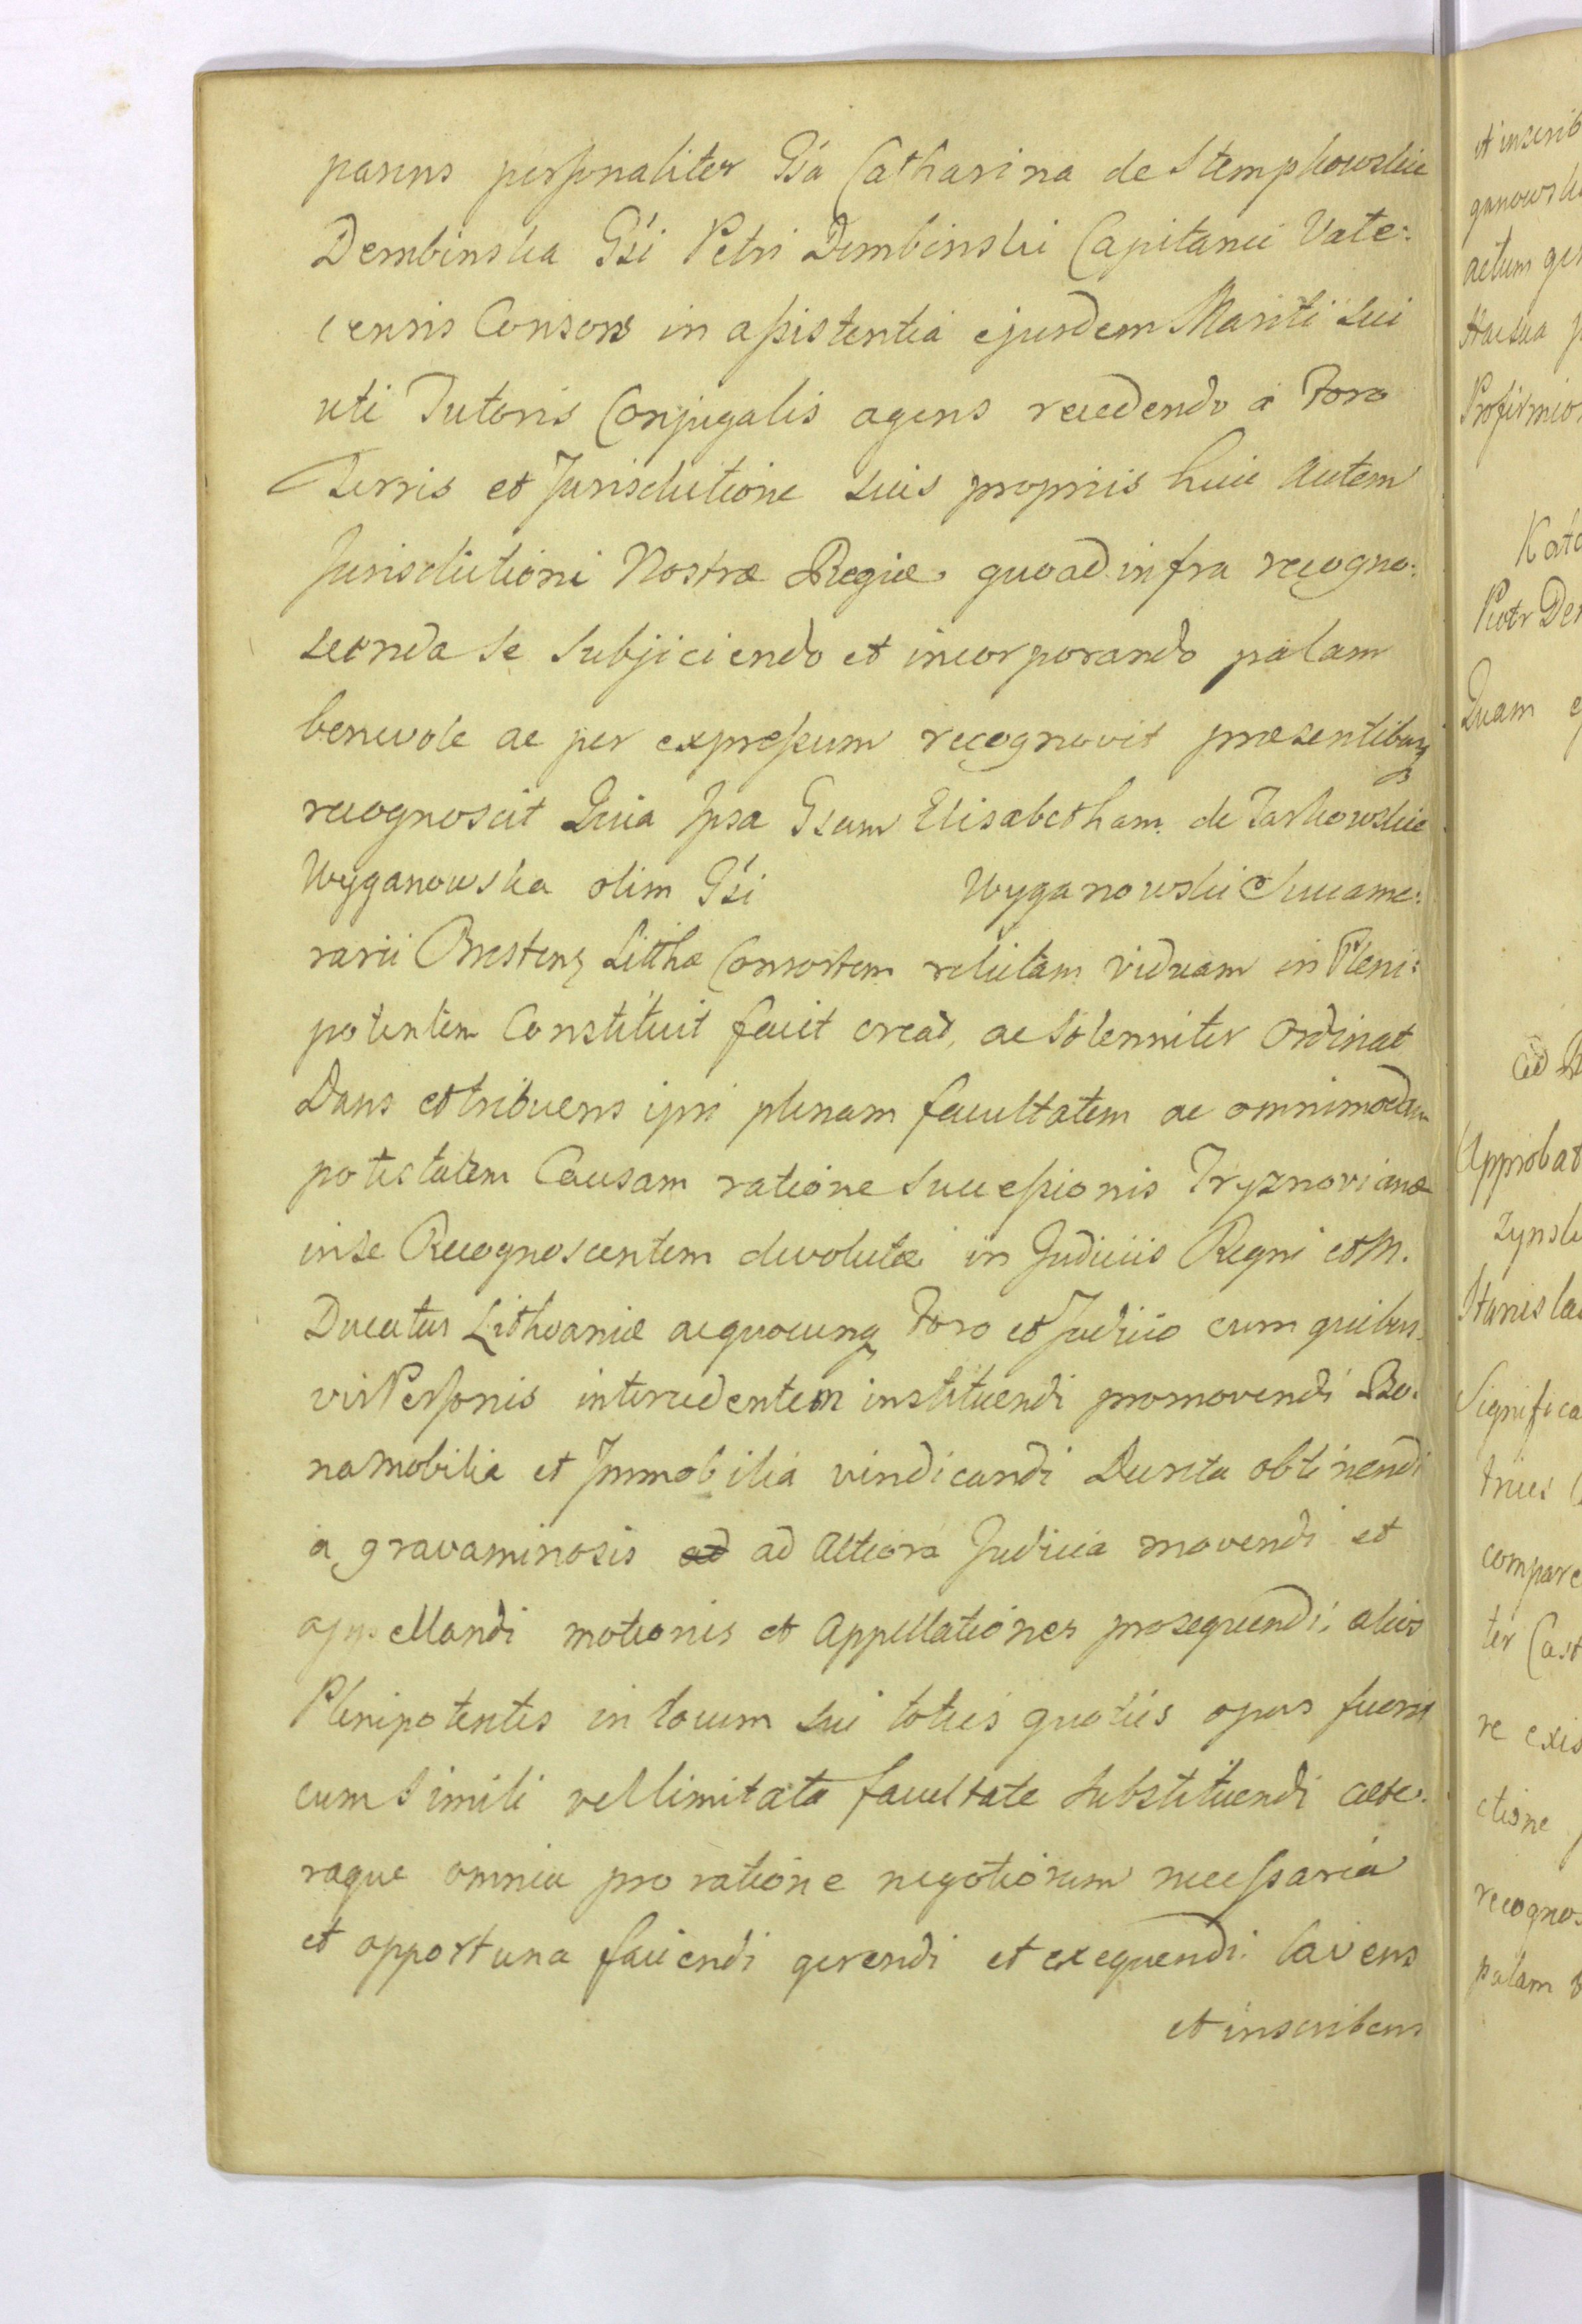 parens personaliter Gsa Catharina de Stempkowskie
Dembinska Gsi Petri Dembinski Capitanei Vate:
censis Consors in assistentia ejusdem Mariti sui
uti Tutoris Conjugalis agens recedendo a Foro
Terris et Jurisdictione suis propriis huic autem
Jurisdictioni Nostræ Regiæ quoad infra recogno:
scenda se subjiciendo et incorporando palam
benevole ac per expressum recognovit præsentibusq
recognoscit Quia Ipsa Gsam Elisabetham de Tarkowskie
Wyganowska olim Gsi Wyganowski Succame:
rarii Brestens Litthæ Consortem relictam viduam in Pleni:
potentem Constituit facit creat, ac solenniter Ordinat
Dans et tribuens ipsi plenam facultatem ac omnimodam
potestatem Causam ratione Successionis Tryznovianæ
in se Recognoscentem devolutæ in Judiciis Regni et M.
Ducatus Lithvaniæ ac quocunq Foro et Judicio cum quibus
vis Personis intercedentem instituendi promovendi Bo:
na Mobilia et Immobilia vindicandi Decreta obtinendi
a gravaminosis ad ad Altiora Judicia movendi et
appellandi motiones et Appellationes prosequendi, alios
Plenipotentes in locum sui toties quoties opus fuerit
cum simili vel limitata facultate substituendi cæte:
raque omnia pro ratione negotiorum necessaria
et opportuna faciendi gerendi et exequendi. Cavens
et inscribens
et inscrib
ganowsk
actum
Profirmio
Piotr De
Quam
Approbat
zynsk
Stanisla
Significa
trices
compare
ter Cast
re exis
ctione
recogno
palam